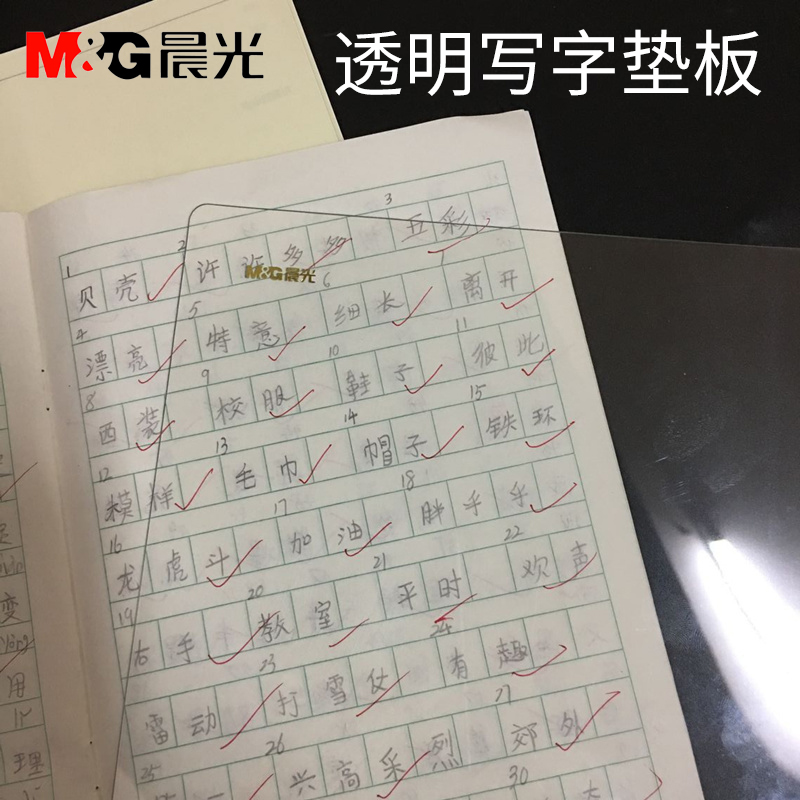 M&G晨光
透明写字垫板
M&G晨光
1 贝壳 2 许许多多 3 五彩
4 漂亮 5 特意 6 细长 离开
8 西装 9 校服 10 鞋子 11 彼此
12 模样 13 毛巾 14 帽子 15 铁环
16 龙虎斗 17 加油 18 胖乎乎
19 右手 20 教室 21 平时 22 欢声
雷动 23 打雪仗 24 有趣
25 26 兴高采烈 27 郊外
30
变
用
理